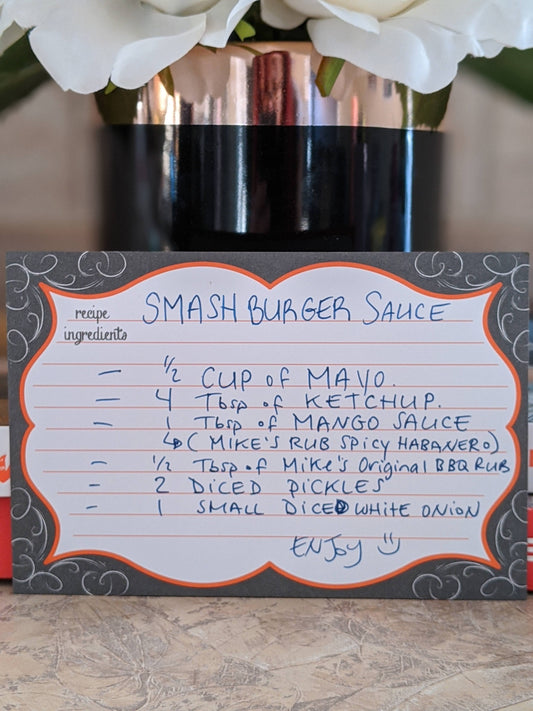 recipe
ingredients
SMASH BURGER SAUCE
– 1/2 CUP of MAYO.
– 4 Tbsp of KETCHUP.
– 1 Tbsp of MANGO SAUCE
↳ (MIKE'S RUB SPicy HABANERO)
– 1/2 Tbsp of Mike's Original BBQ RUB
– 2 DICED PICKLES
– 1 SMALL DICED WHITE ONION
ENJoy :)